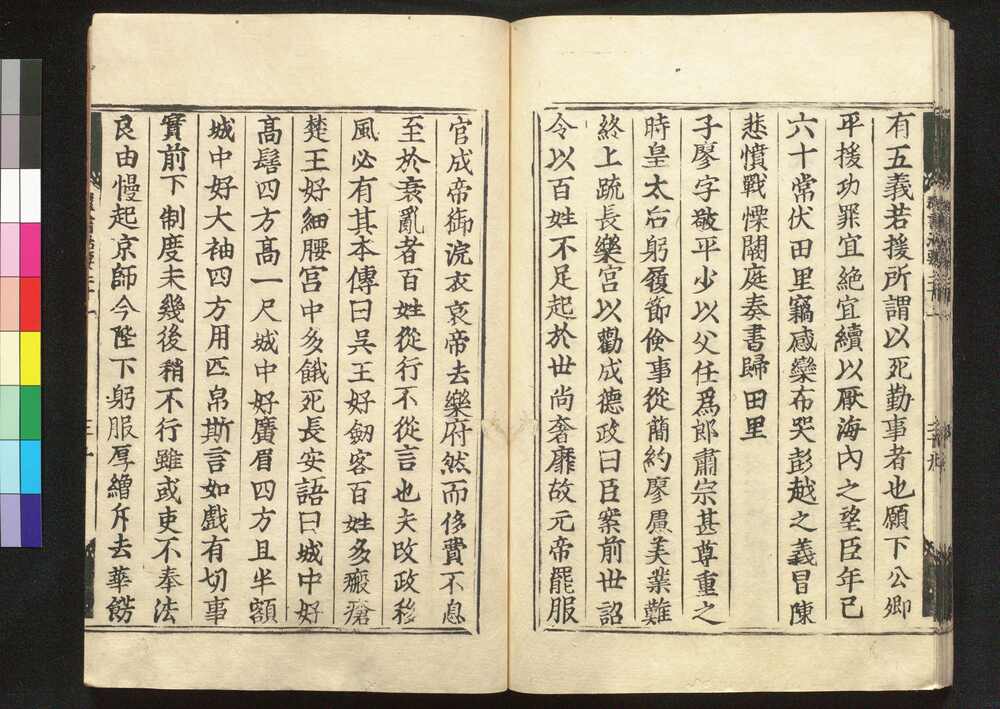 有五義若援所謂以死勤事者也願下公卿
平援功罪宜絶宜續以厭海内之望臣年已
六十常伏田里竊感欒布哭彭越之義冒陳
悲憤戰慄闕庭奏書歸田里
子廖字敬平少以父任爲郎肅宗甚尊重之
時皇太后躬履節儉事從簡約廖慮美業難
終上疏長樂宮以勸成德政曰臣案前世詔
令以百姓不足起於世尚奢靡故元帝罷服
官成帝御浣衣哀帝去樂府然而侈費不息
至於衰亂者百姓從行不從言也夫改政移
風必有其本傳曰吳王好劒客百姓多瘢瘡
楚王好細腰宮中多餓死長安語曰城中好
髙髻四方髙一尺城中好廣眉四方且半額
城中好大袖四方用匹帛斯言如戲有切事
實前下制度未幾後稍不行雖或吏不奉法
良由慢起京師今陛下躬服厚繒斥去華餝